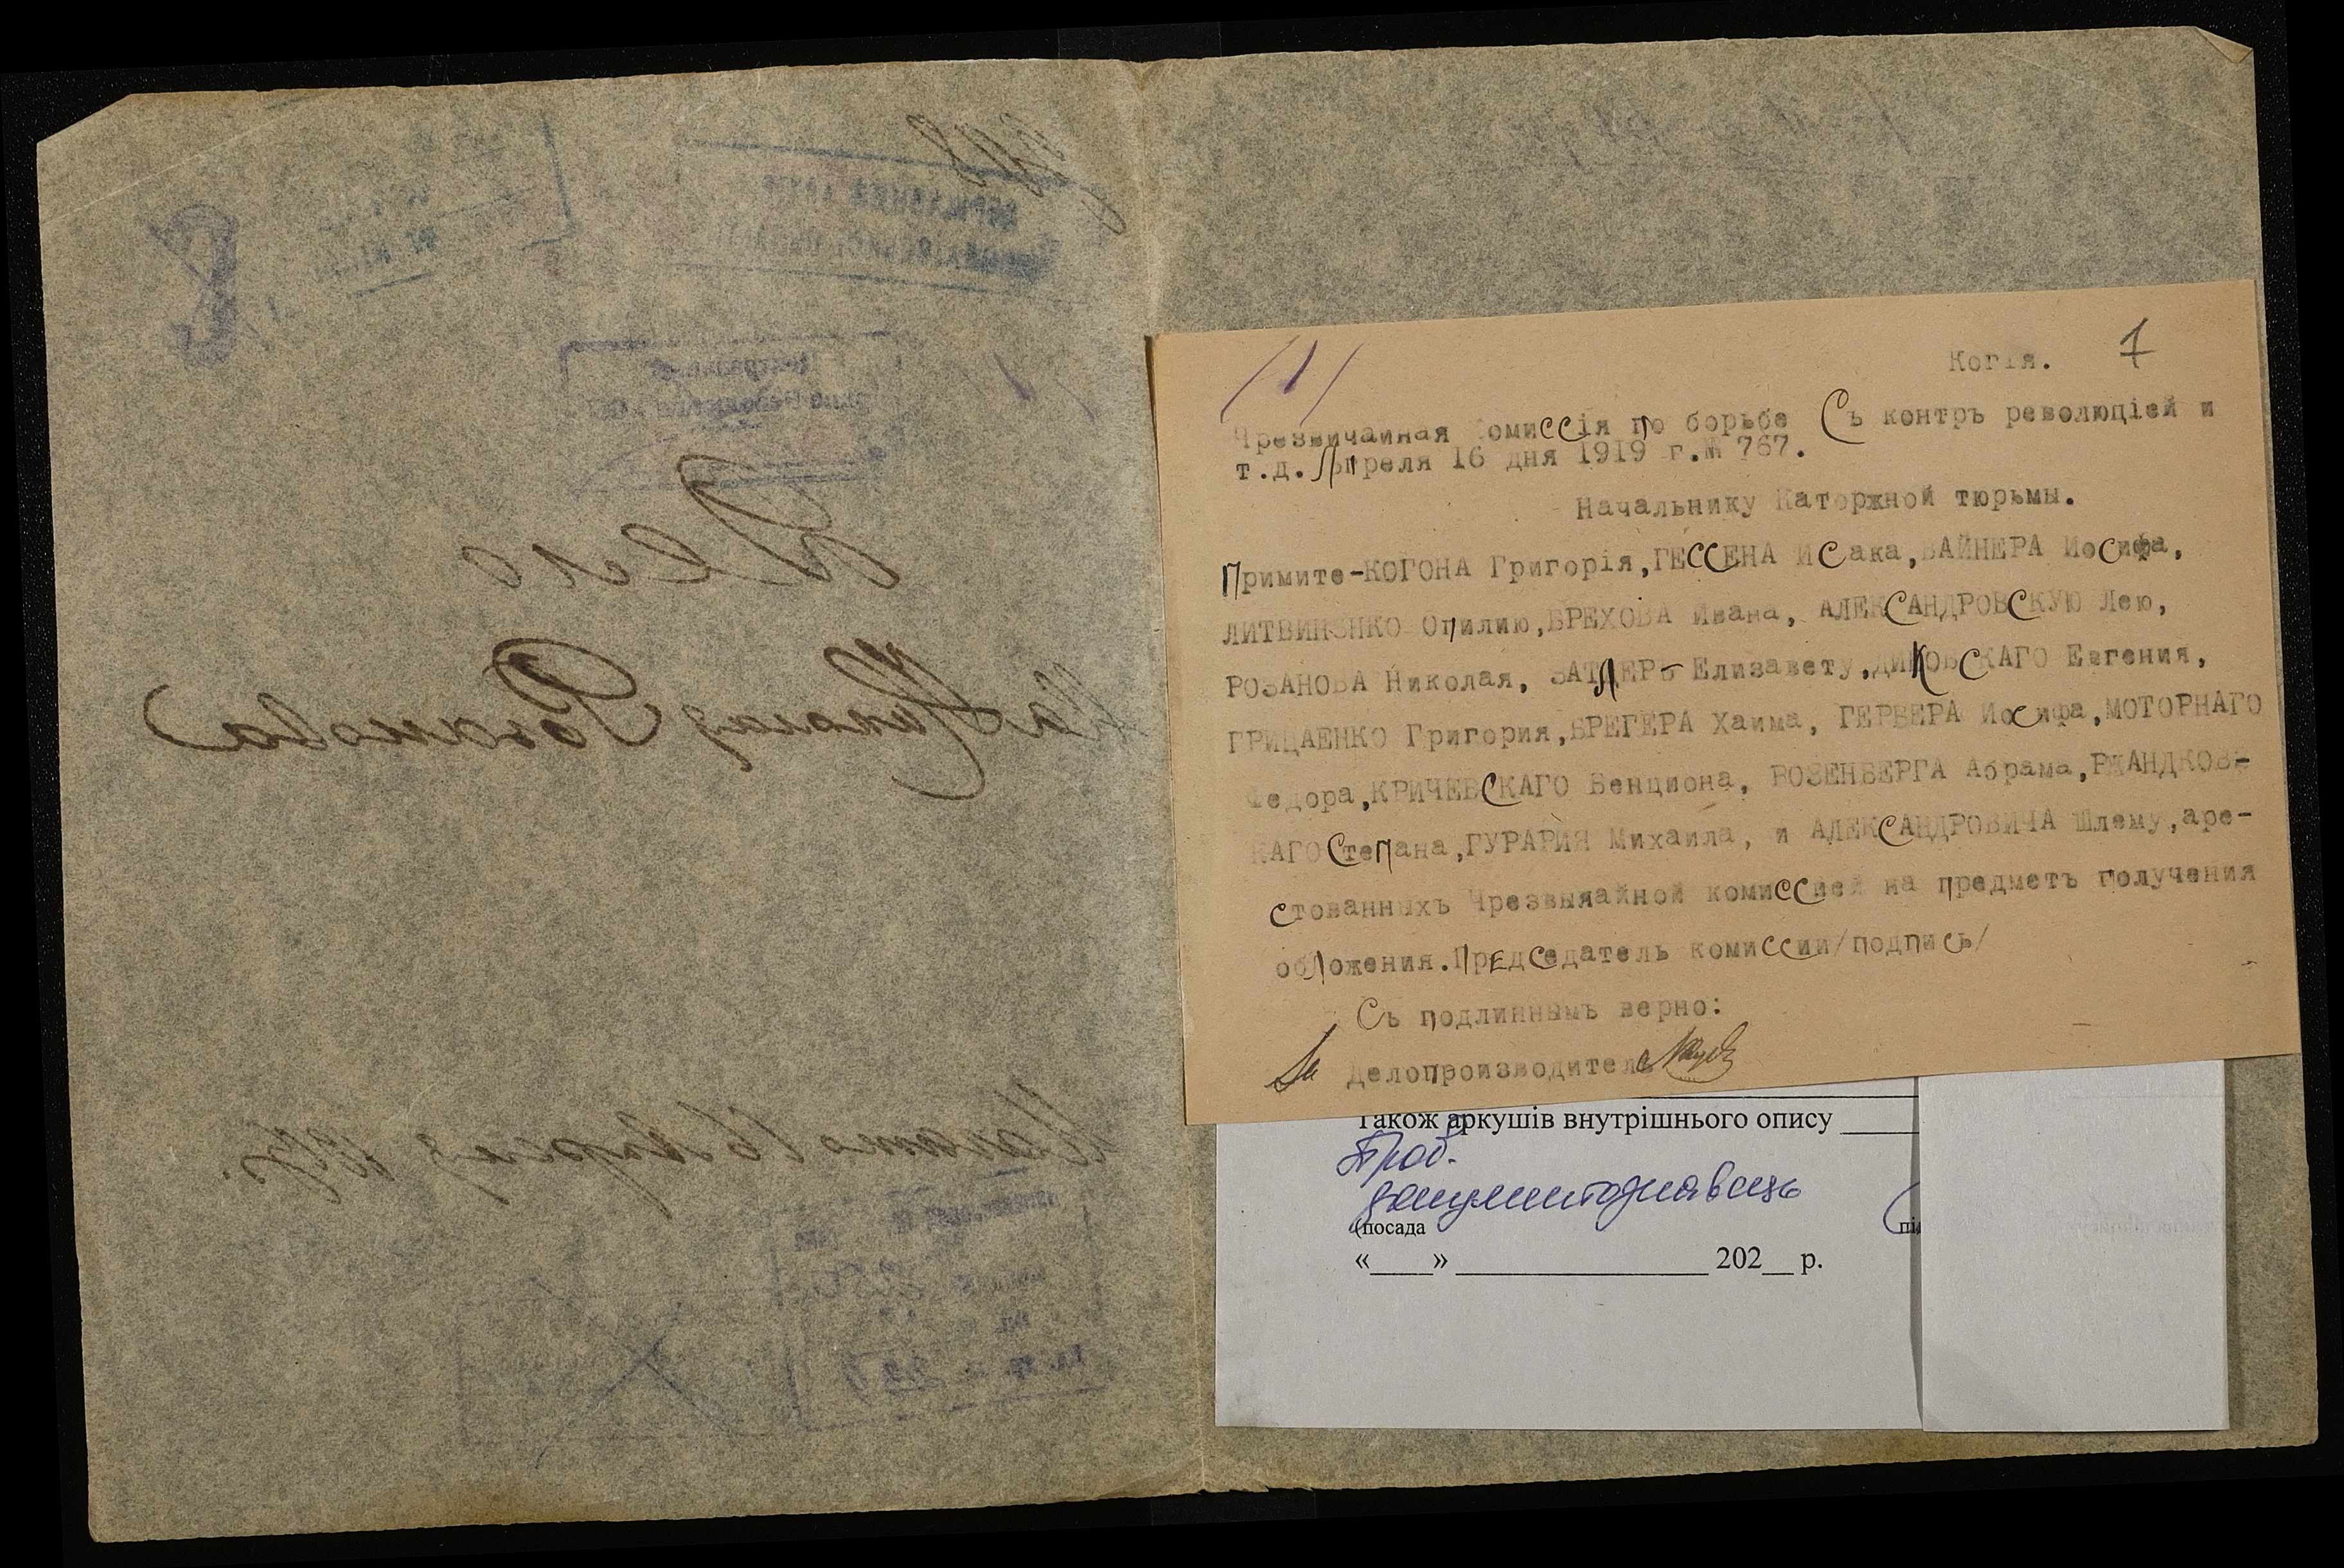 Дело
На Николая Розанова
Начато 16 Апреля 1919 г.
/1/
Копія. 1
Чрезвичайная Комиссія по борьбе Съ контръ революціей и
т.д. Апреля 16 дня 1919 г.№ 767.
Начальнику Каторжной тюрьмы.
Примите-КОГОНА Григорія,ГЕССЕНА Исака,ВАЙНЕРА Иосифа,
ЛИТВИНЕНКО Опилию,БРЕХОВА Ивана, АЛЕКСАНДРОВСКУЮ Лею,
РОЗАНОВА Николая, ЗАТЛЕРЪ Елизавету,ДИКОВСКАГО Евгения,
ГРИЦАЕНКО Григория,БРЕГЕРА Хаима, ГЕРВЕРА Иосифа,МОТОРНАГО
Федора,КРИЧЕВСКАГО Бенциона, РОЗЕНБЕРГА Абрама,РЖАНДКОВ-
КАГО Степана,ГУРАРИЯ Михаила, и АЛЕКСАНДРОВИЧА Шлему,аре-
стованныхъ Чрезвыяайной комиссией на предметъ получения
обложения.Председатель комиссии/подпись/
Съ подлиннымъ верно:
За Делопроизводитель
також аркушів внутрішнього опису
Пров.
документознавець
(посада
під
«____» ________________ 202__ р.